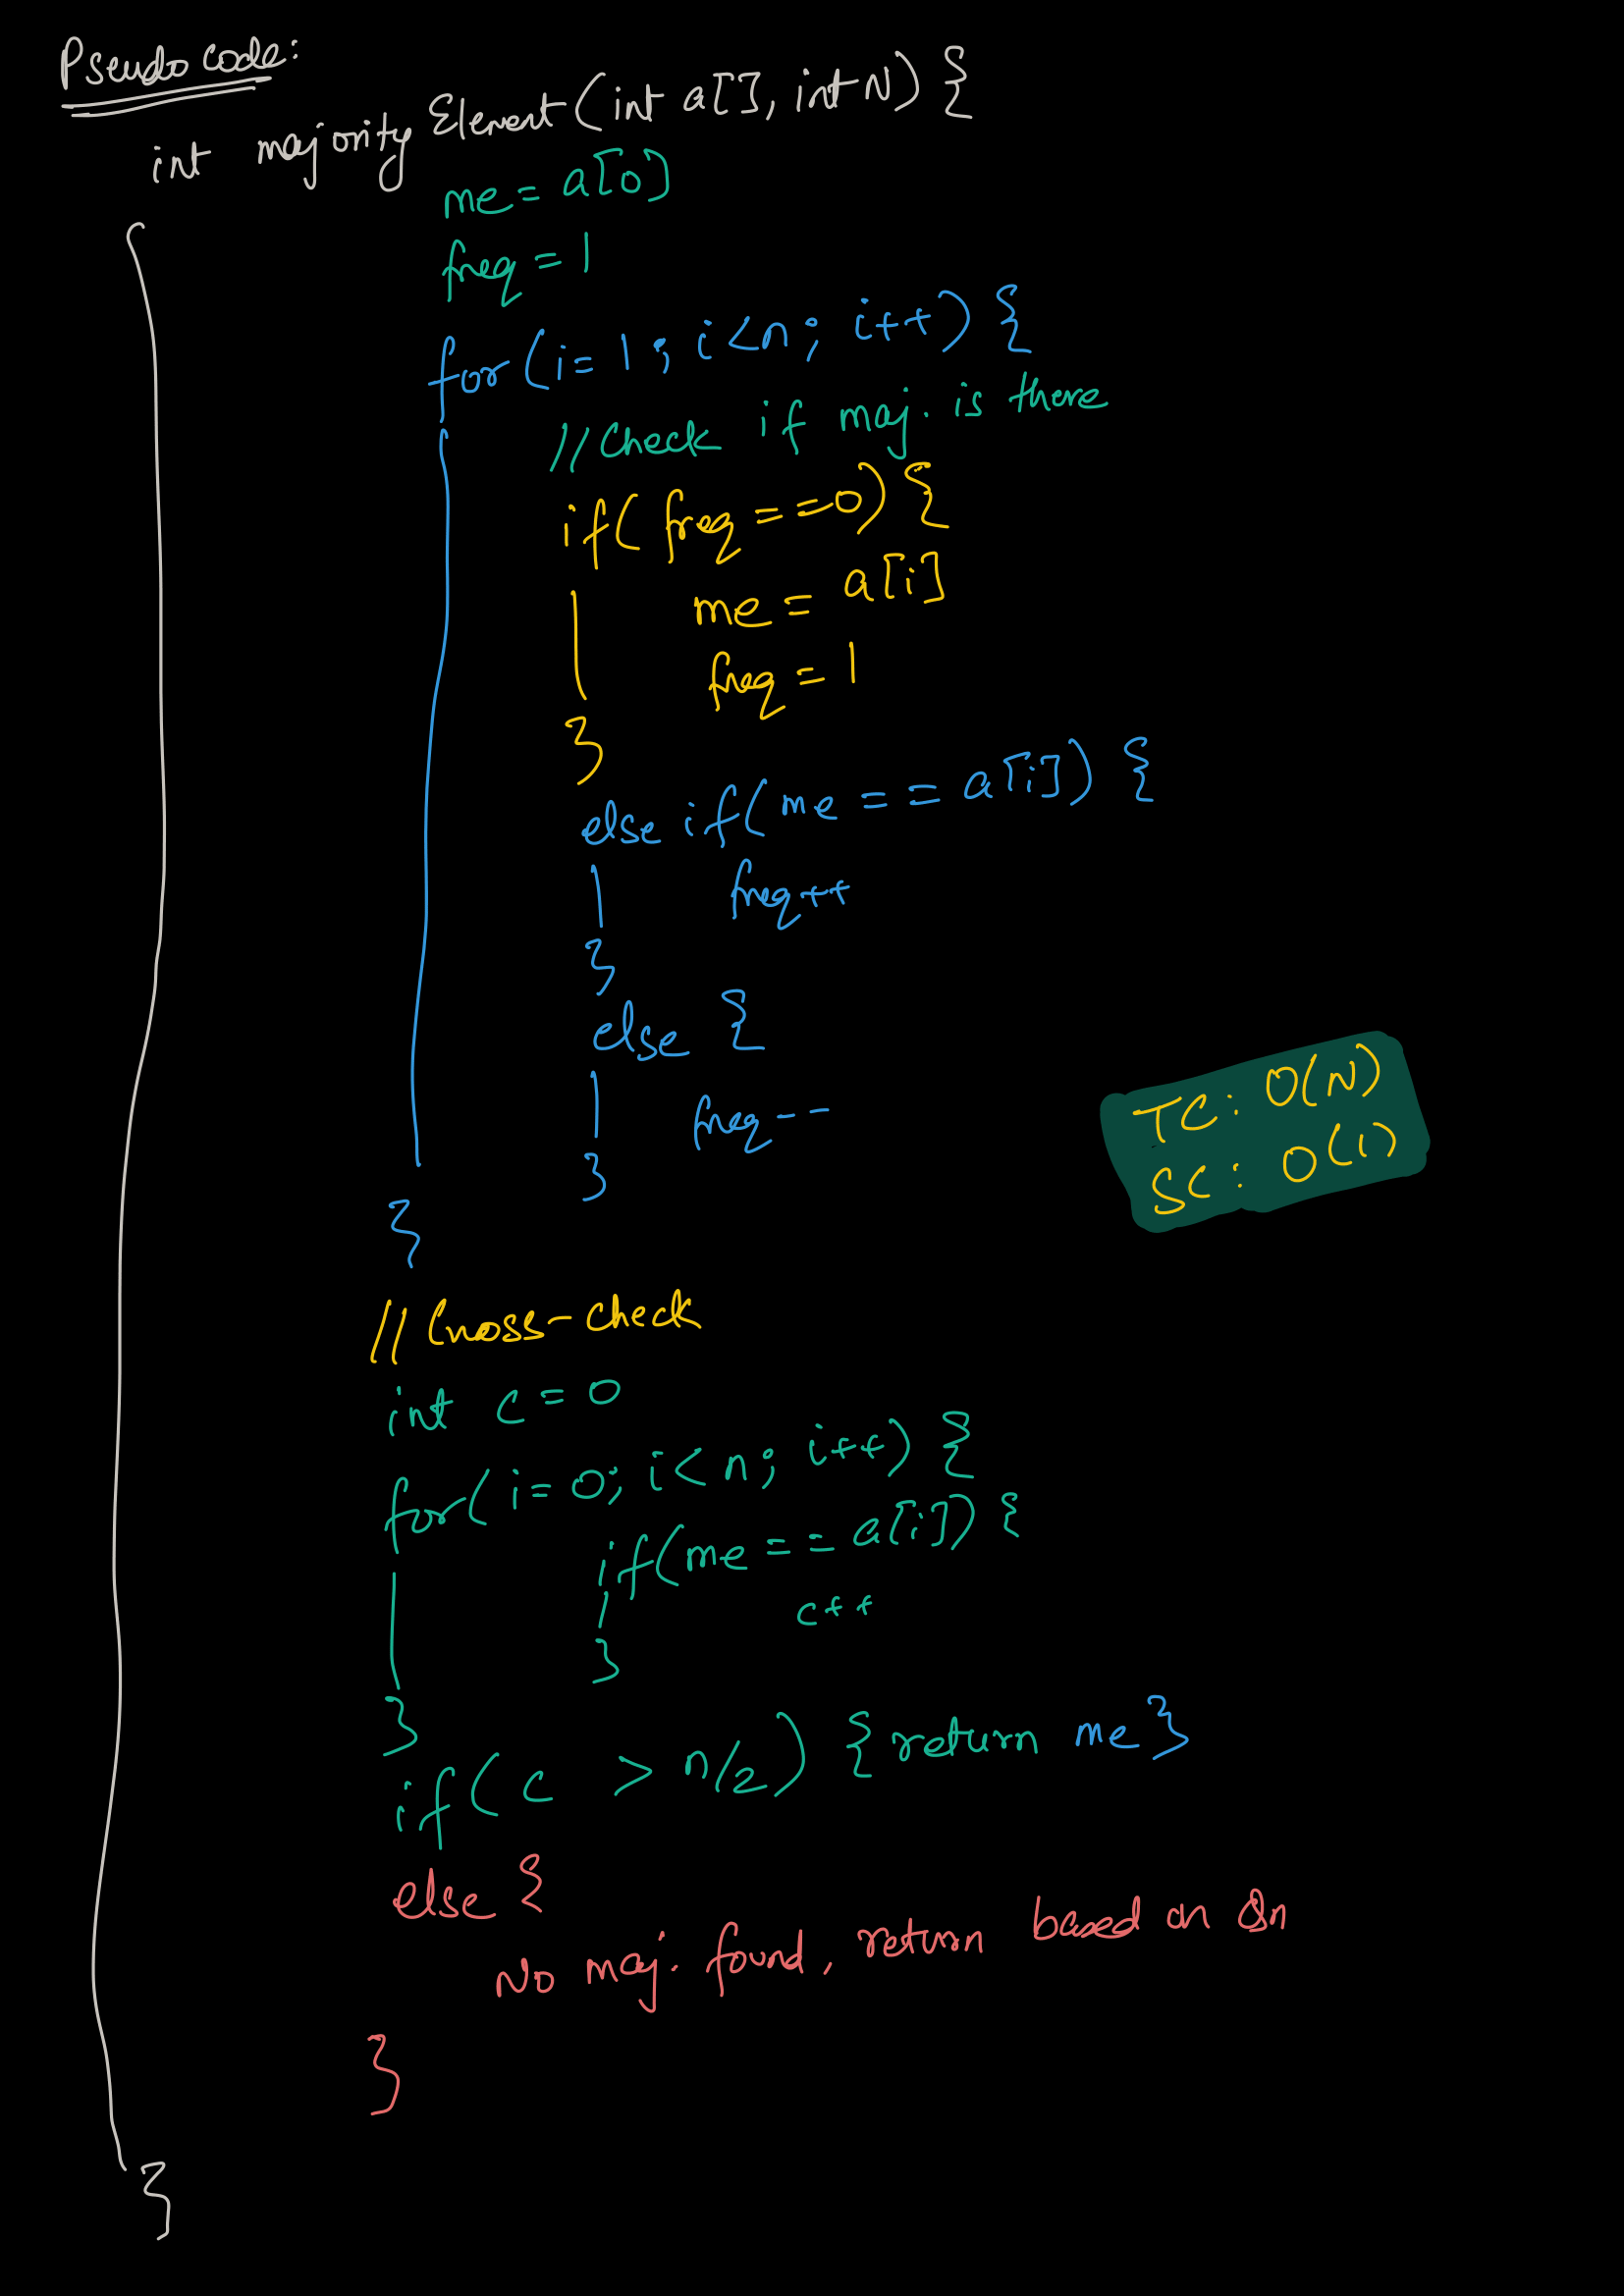 Pseudo code:
int majority Element(int a[], int N) {
me = a[0]
freq = 1
for(i= 1; i<n; i++) {
//Check if maj. is there
if(freq ==0) {
me = a[i]
freq = 1
}
else if(me == a[i]) {
freq++
}
else {
freq--
}
TC: O(N)
SC: O(1)
}
//Cross-check
int c=0
for(i=0; i<n; i++) {
if(me == a[i]) {
c++
}
}
if( c > n/2) {return me}
else {
No maj. found, return based on Qn
}
}